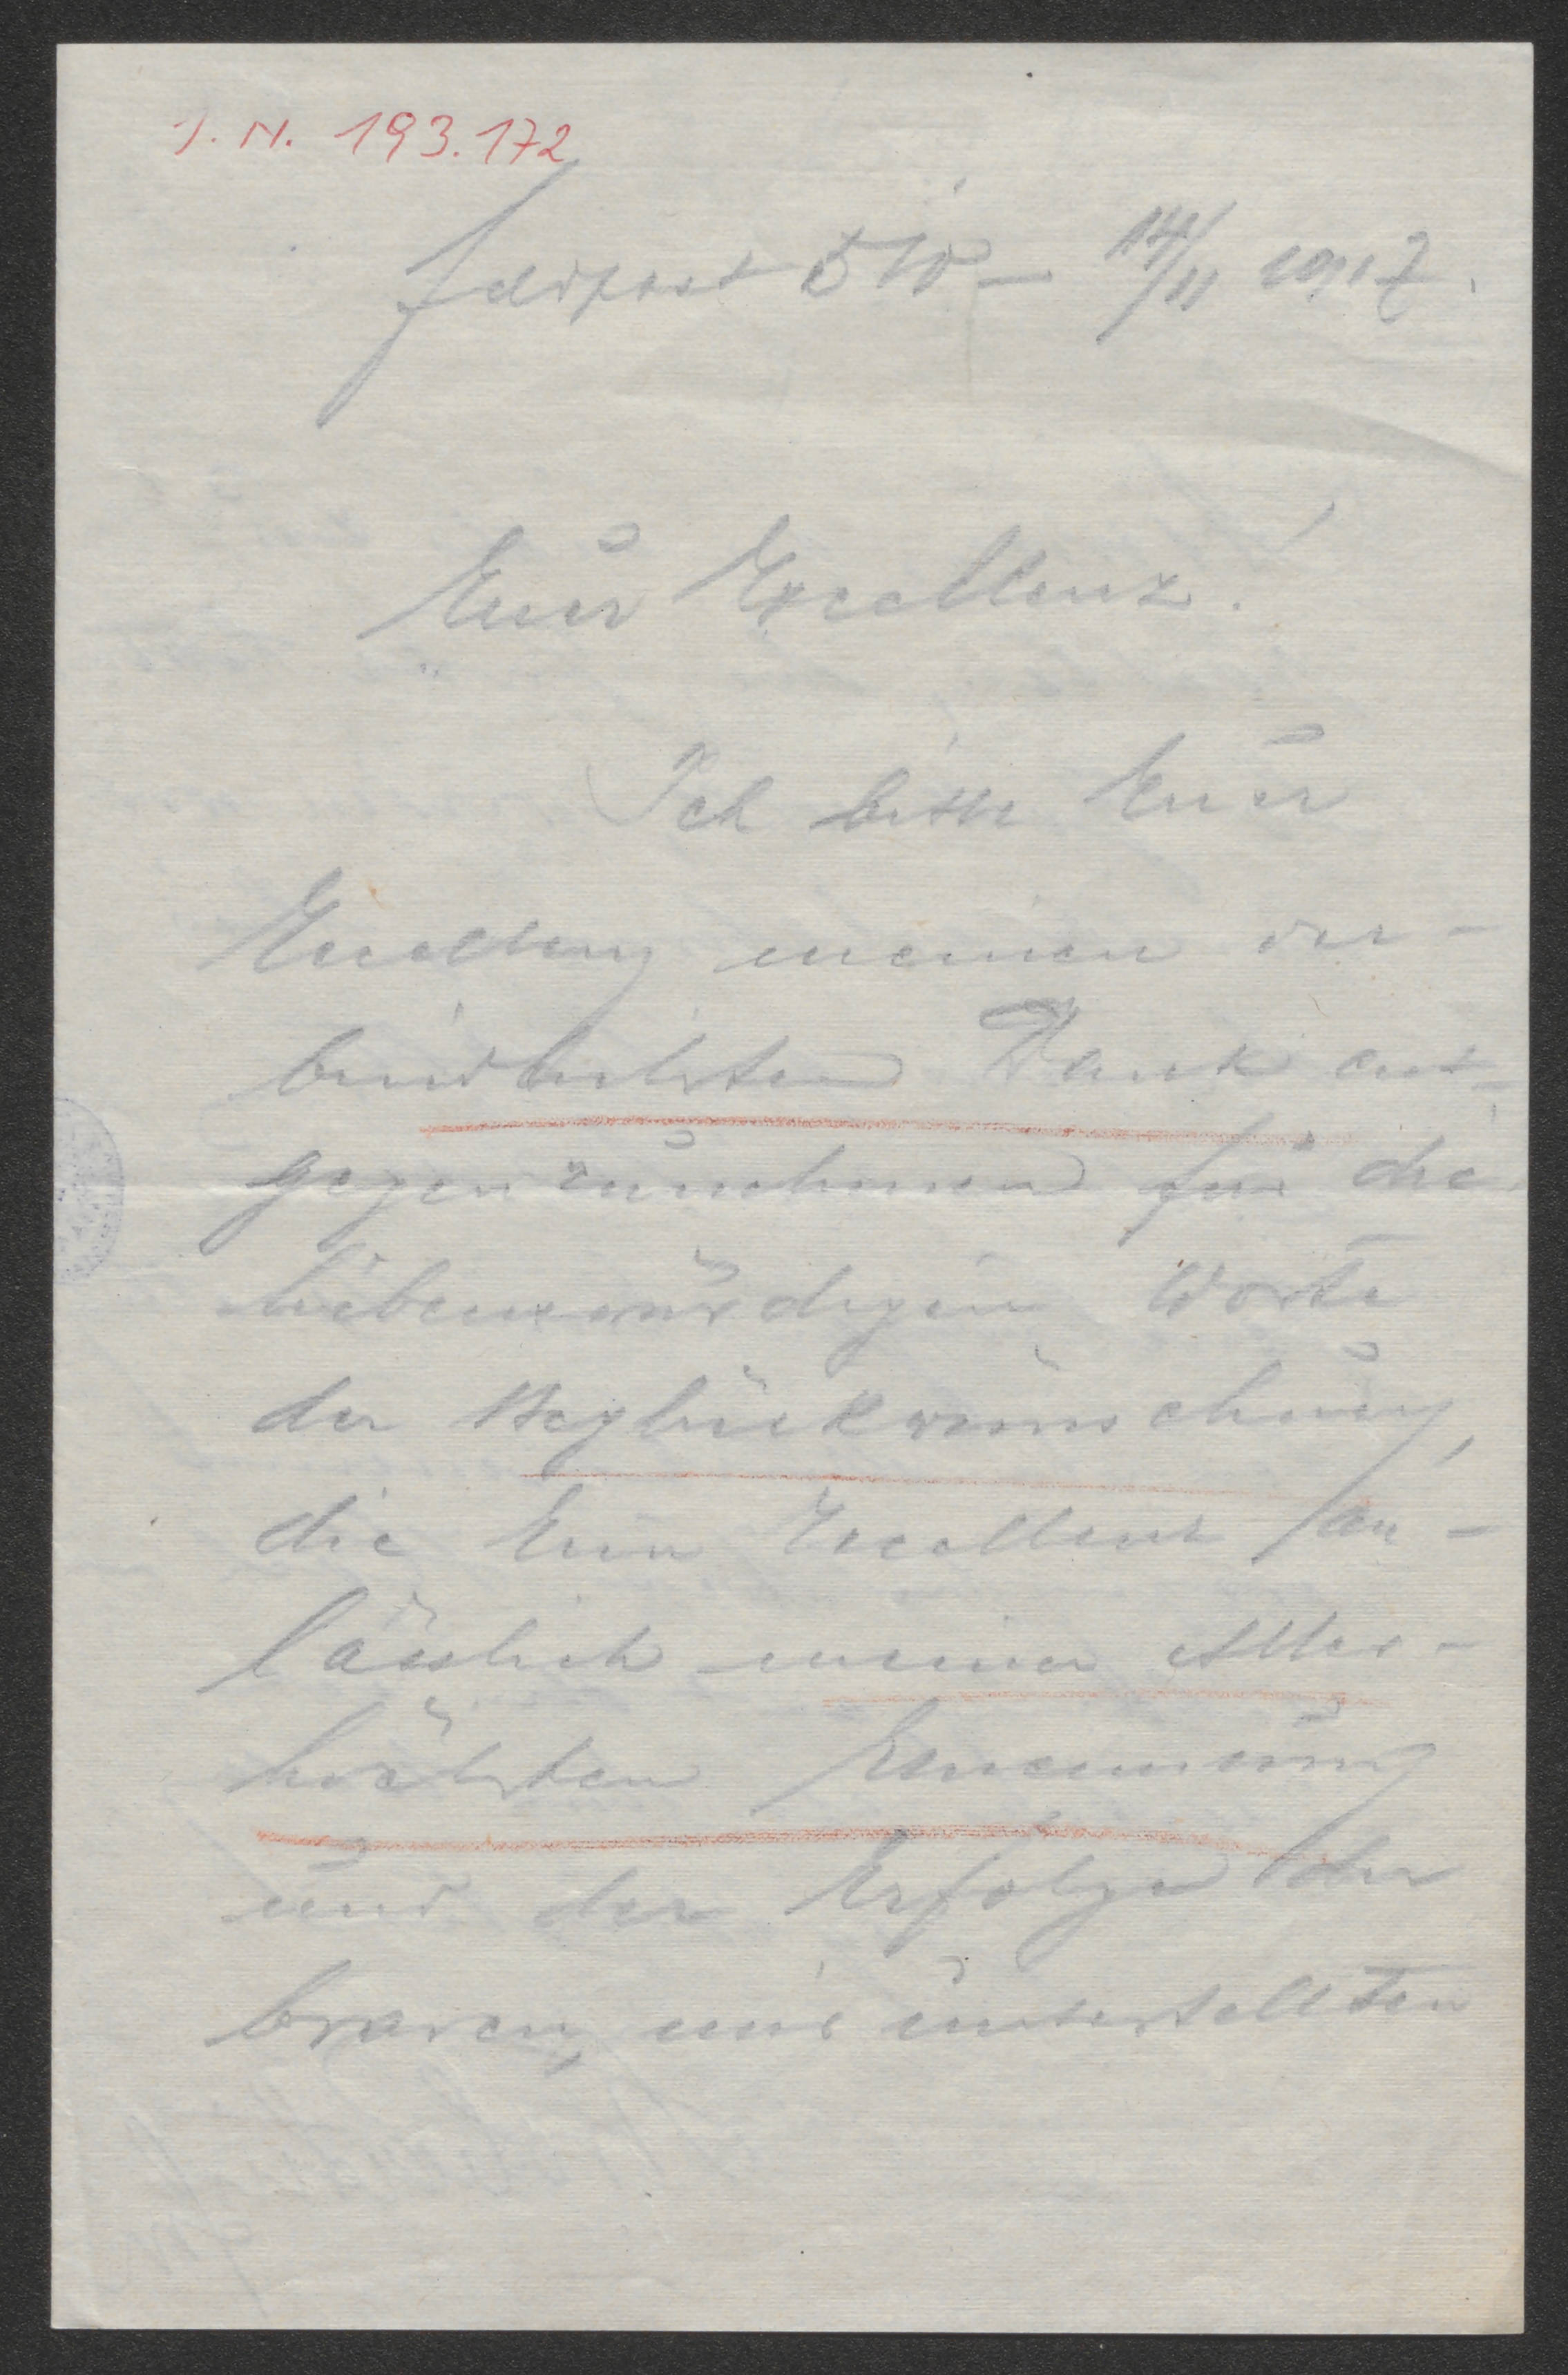 I. N. 193.172
Feldpost 510 – 14/11 1917.
Euer Excellenz!
Ich bitte Euer
Excellenz meinen ver-
bindlichsten Dank ent-
gegenzunehmen für die
liebenswürdigen Worte
der Beglückwünschung,
die Euer Excellenz an-
lässlich meiner Aller-
höchsten Ernennung
und der Erfolge der
braven, mir unterstellten